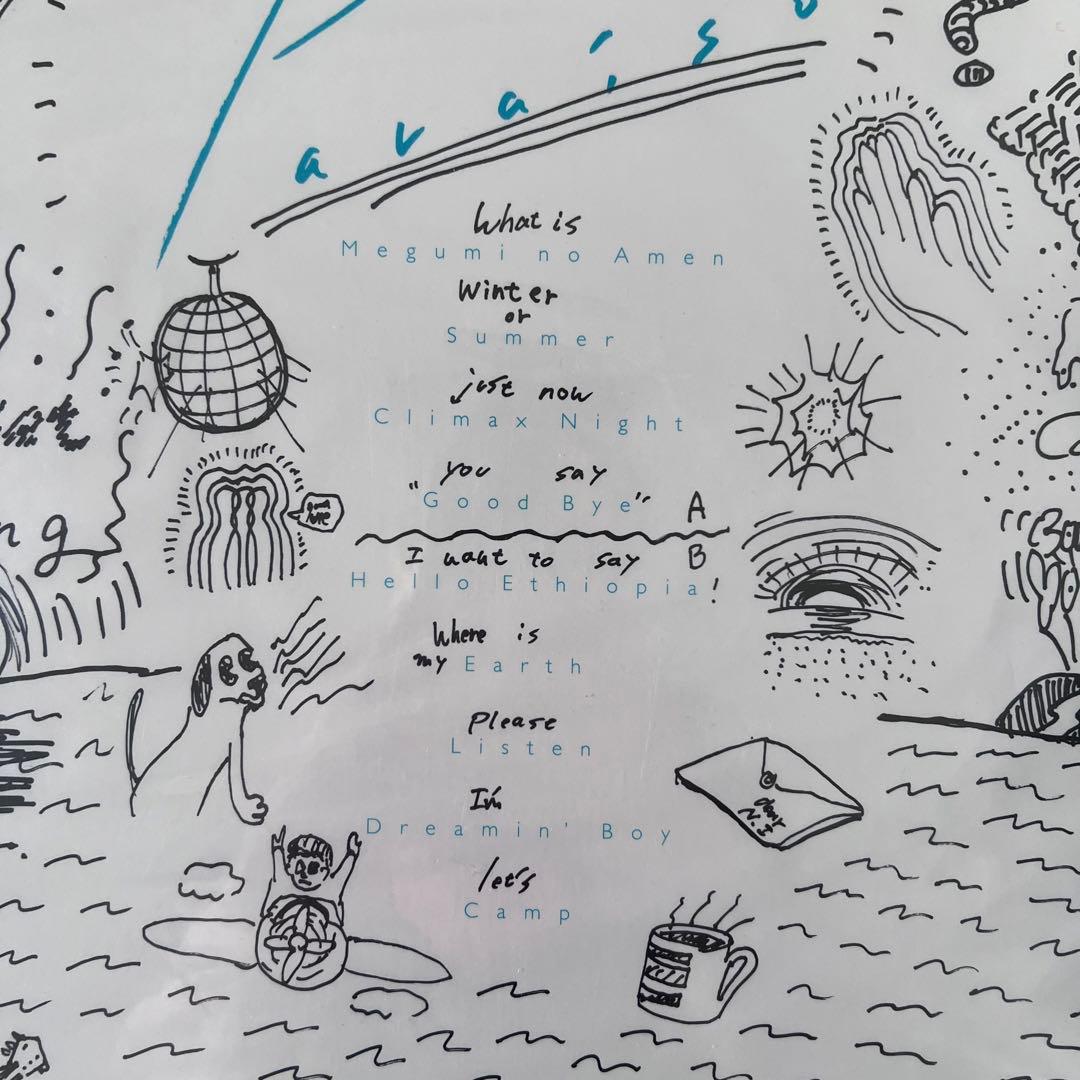 a v a i s o
What is
Megumi no Amen
Winter
or
Summer
just now
Climax Night
you say
"Good Bye"
A
ng
I want to say
B
Hello Ethiopia!
Where is
my Earth
Please
Listen
I'm
Dreamin' Boy
dear
N.I
let's
Camp